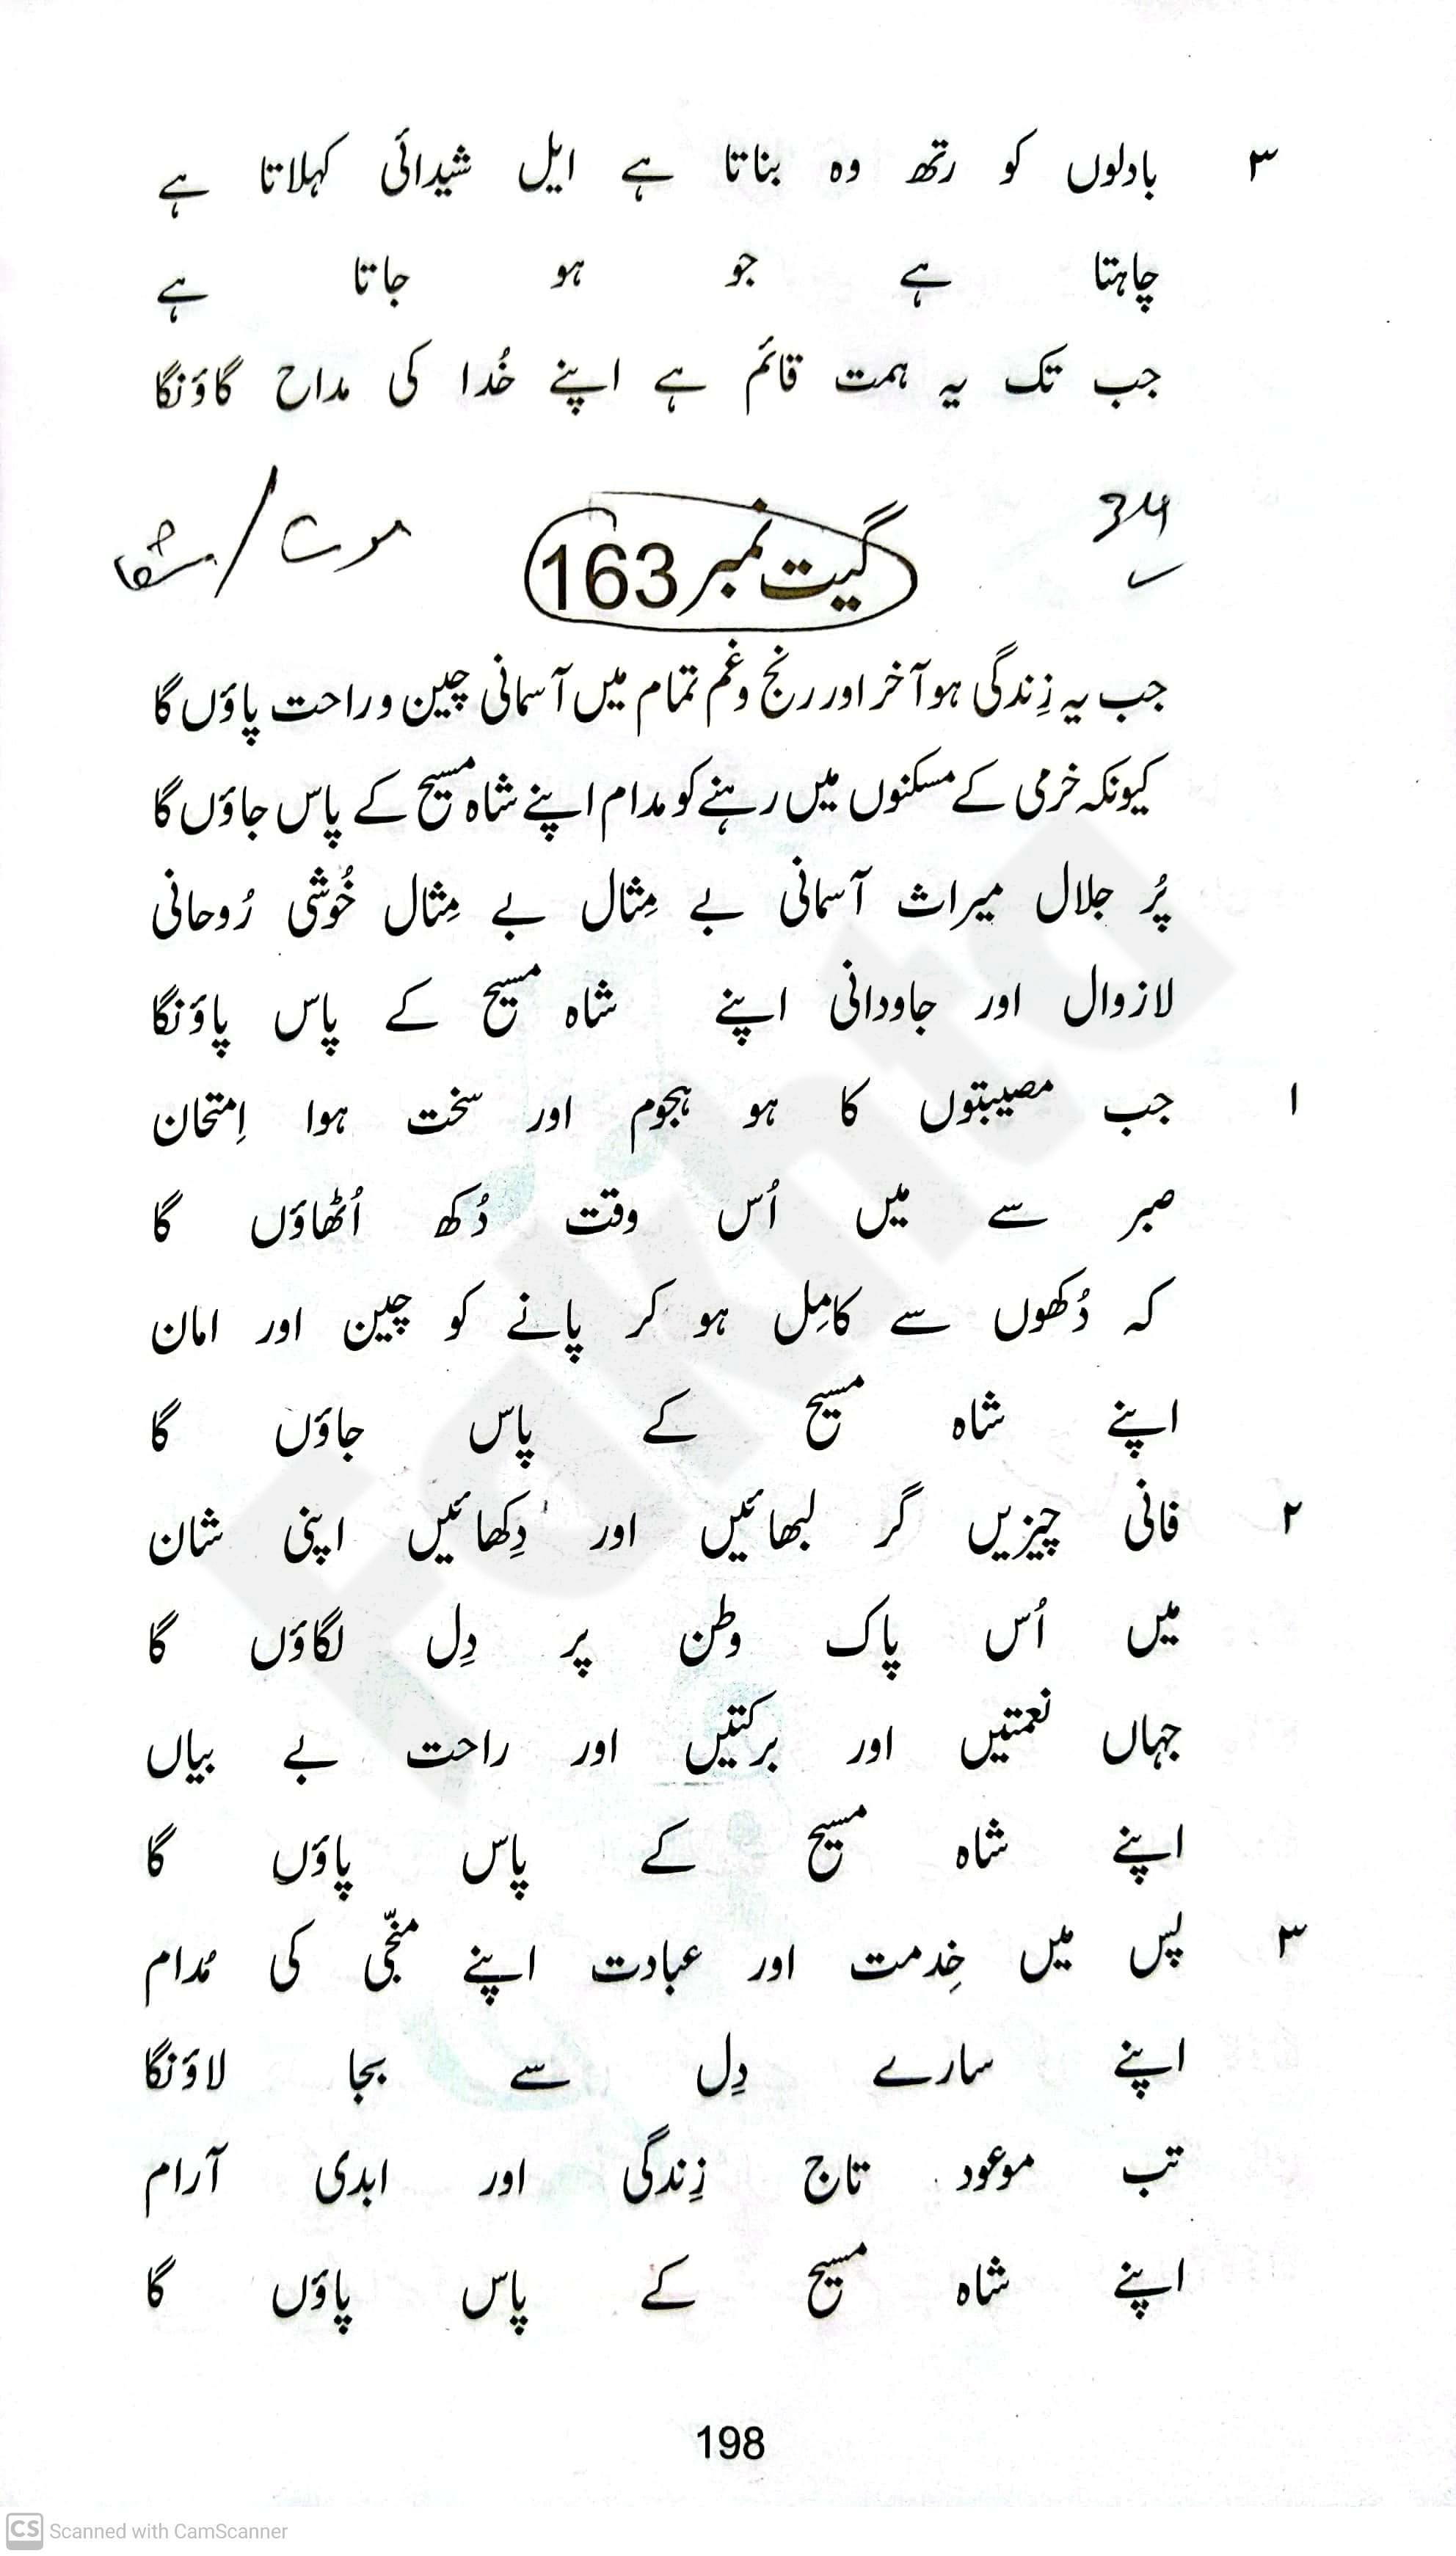 ۳ بادلوں کو رتھ وہ بناتا ہے ایل شیدائی کہلاتا ہے
چاہتا ہے جو ہو جاتا ہے
جب تک یہ ہمت قائم ہے اپنے خُدا کی مداح گاؤنگا
34
گیت نمبر 163
موت / شفا
جب یہ زِندگی ہو آخر اور رنج و غم تمام میں آسمانی چین و راحت پاؤں گا
کیونکہ خرمی کے مسکنوں میں رہنے کو مدام اپنے شاہ مسیح کے پاس جاؤں گا
پُر جلال میراث آسمانی بے مِثال بے مِثال خُوشی رُوحانی
لازوال اور جاودانی اپنے شاہ مسیح کے پاس پاؤنگا
۱ جب مصیبتوں کا ہو ہجوم اور سخت ہوا اِمتحان
صبر سے میں اُس وقت دُکھ اُٹھاؤں گا
کہ دُکھوں سے کامِل ہو کر پانے کو چین اور امان
اپنے شاہ مسیح کے پاس جاؤں گا
۲ فانی چیزیں گر لبھائیں اور دِکھائیں اپنی شان
میں اُس پاک وطن پر دِل لگاؤں گا
جہاں نعمتیں اور برکتیں اور راحت بے بیاں
اپنے شاہ مسیح کے پاس پاؤں گا
۳ پس میں خِدمت اور عبادت اپنے منجّی کی مُدام
اپنے سارے دِل سے بجا لاؤنگا
تب موعود تاج زِندگی اور ابدی آرام
اپنے شاہ مسیح کے پاس پاؤں گا
198
Fakhta
CS Scanned with CamScanner